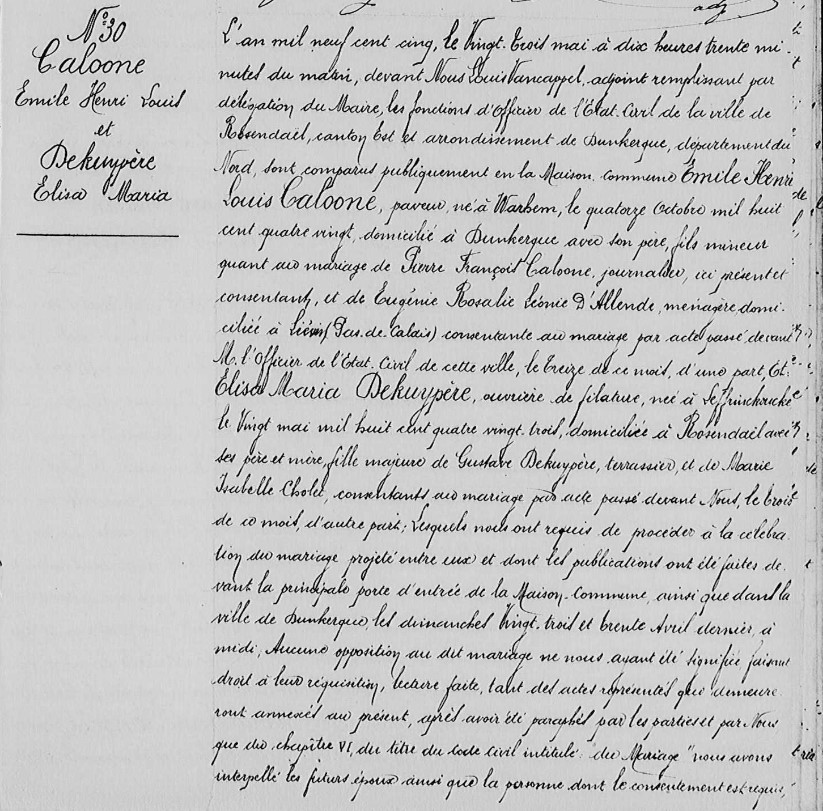 N° 30
Caloone
Emile Henri Louis
et
Dekuypère
Elisa Maria
adj
L'an mil neuf cent cinq, le Vingt-Trois mai à dix heures trente mi-
nutes du matin, devant Nous Louis Vancappel, adjoint remplissant par
délégation du Maire, les fonctions d'Officier de l'Etat-Civil de la ville de
Rosendaël, canton Est et arrondissement de Dunkerque, département du
Nord, sont comparus publiquement en la Maison commune Émile Henri
Louis Caloone, paveur, né à Warhem, le quatorze Octobre mil huit
cent quatre vingt, domicilié à Dunkerque avec son père, fils mineur
quant au mariage de Pierre François Caloone, journalier, ici présent et
consentant, et de Eugénie Rosalie Léonie D'Allende, ménagère, domi-
ciliée à Liévin (Pas-de-Calais) consentante au mariage par acte passé devant
M. l'Officier de l'Etat-Civil de cette ville, le Treize de ce mois, d'une part, Et
Elisa Maria Dekuypère, ouvrière de filature, née à Leffrinckoucke
le Vingt mai mil huit cent quatre vingt-trois, domiciliée à Rosendaël avec
ses père et mère, fille majeure de Gustave Dekuypère, terrassier, et de Marie
Isabelle Cholet, consentants au mariage par acte passé devant Nous, le Trois
de ce mois, d'autre part; Lesquels nous ont requis de procéder à la célébra
tion du mariage projeté entre eux et dont les publications ont été faites de-
vant la principale porte d'entrée de la Maison-Commune, ainsi que dans la
ville de Dunkerque, les dimanches Vingt-trois et trente Avril dernier, à
midi, Aucune opposition au dit mariage ne nous ayant été signifiée faisant
droit à leur réquisition, lecture faite, tant des actes représentés qui demeure-
ront annexés au présent, après avoir été paraphés par les parties et par Nous
que du chapître VI, du titre du Code Civil intitulé: "du Mariage" nous avons
interpellé les futurs époux ainsi que la personne dont le consentement est requis,